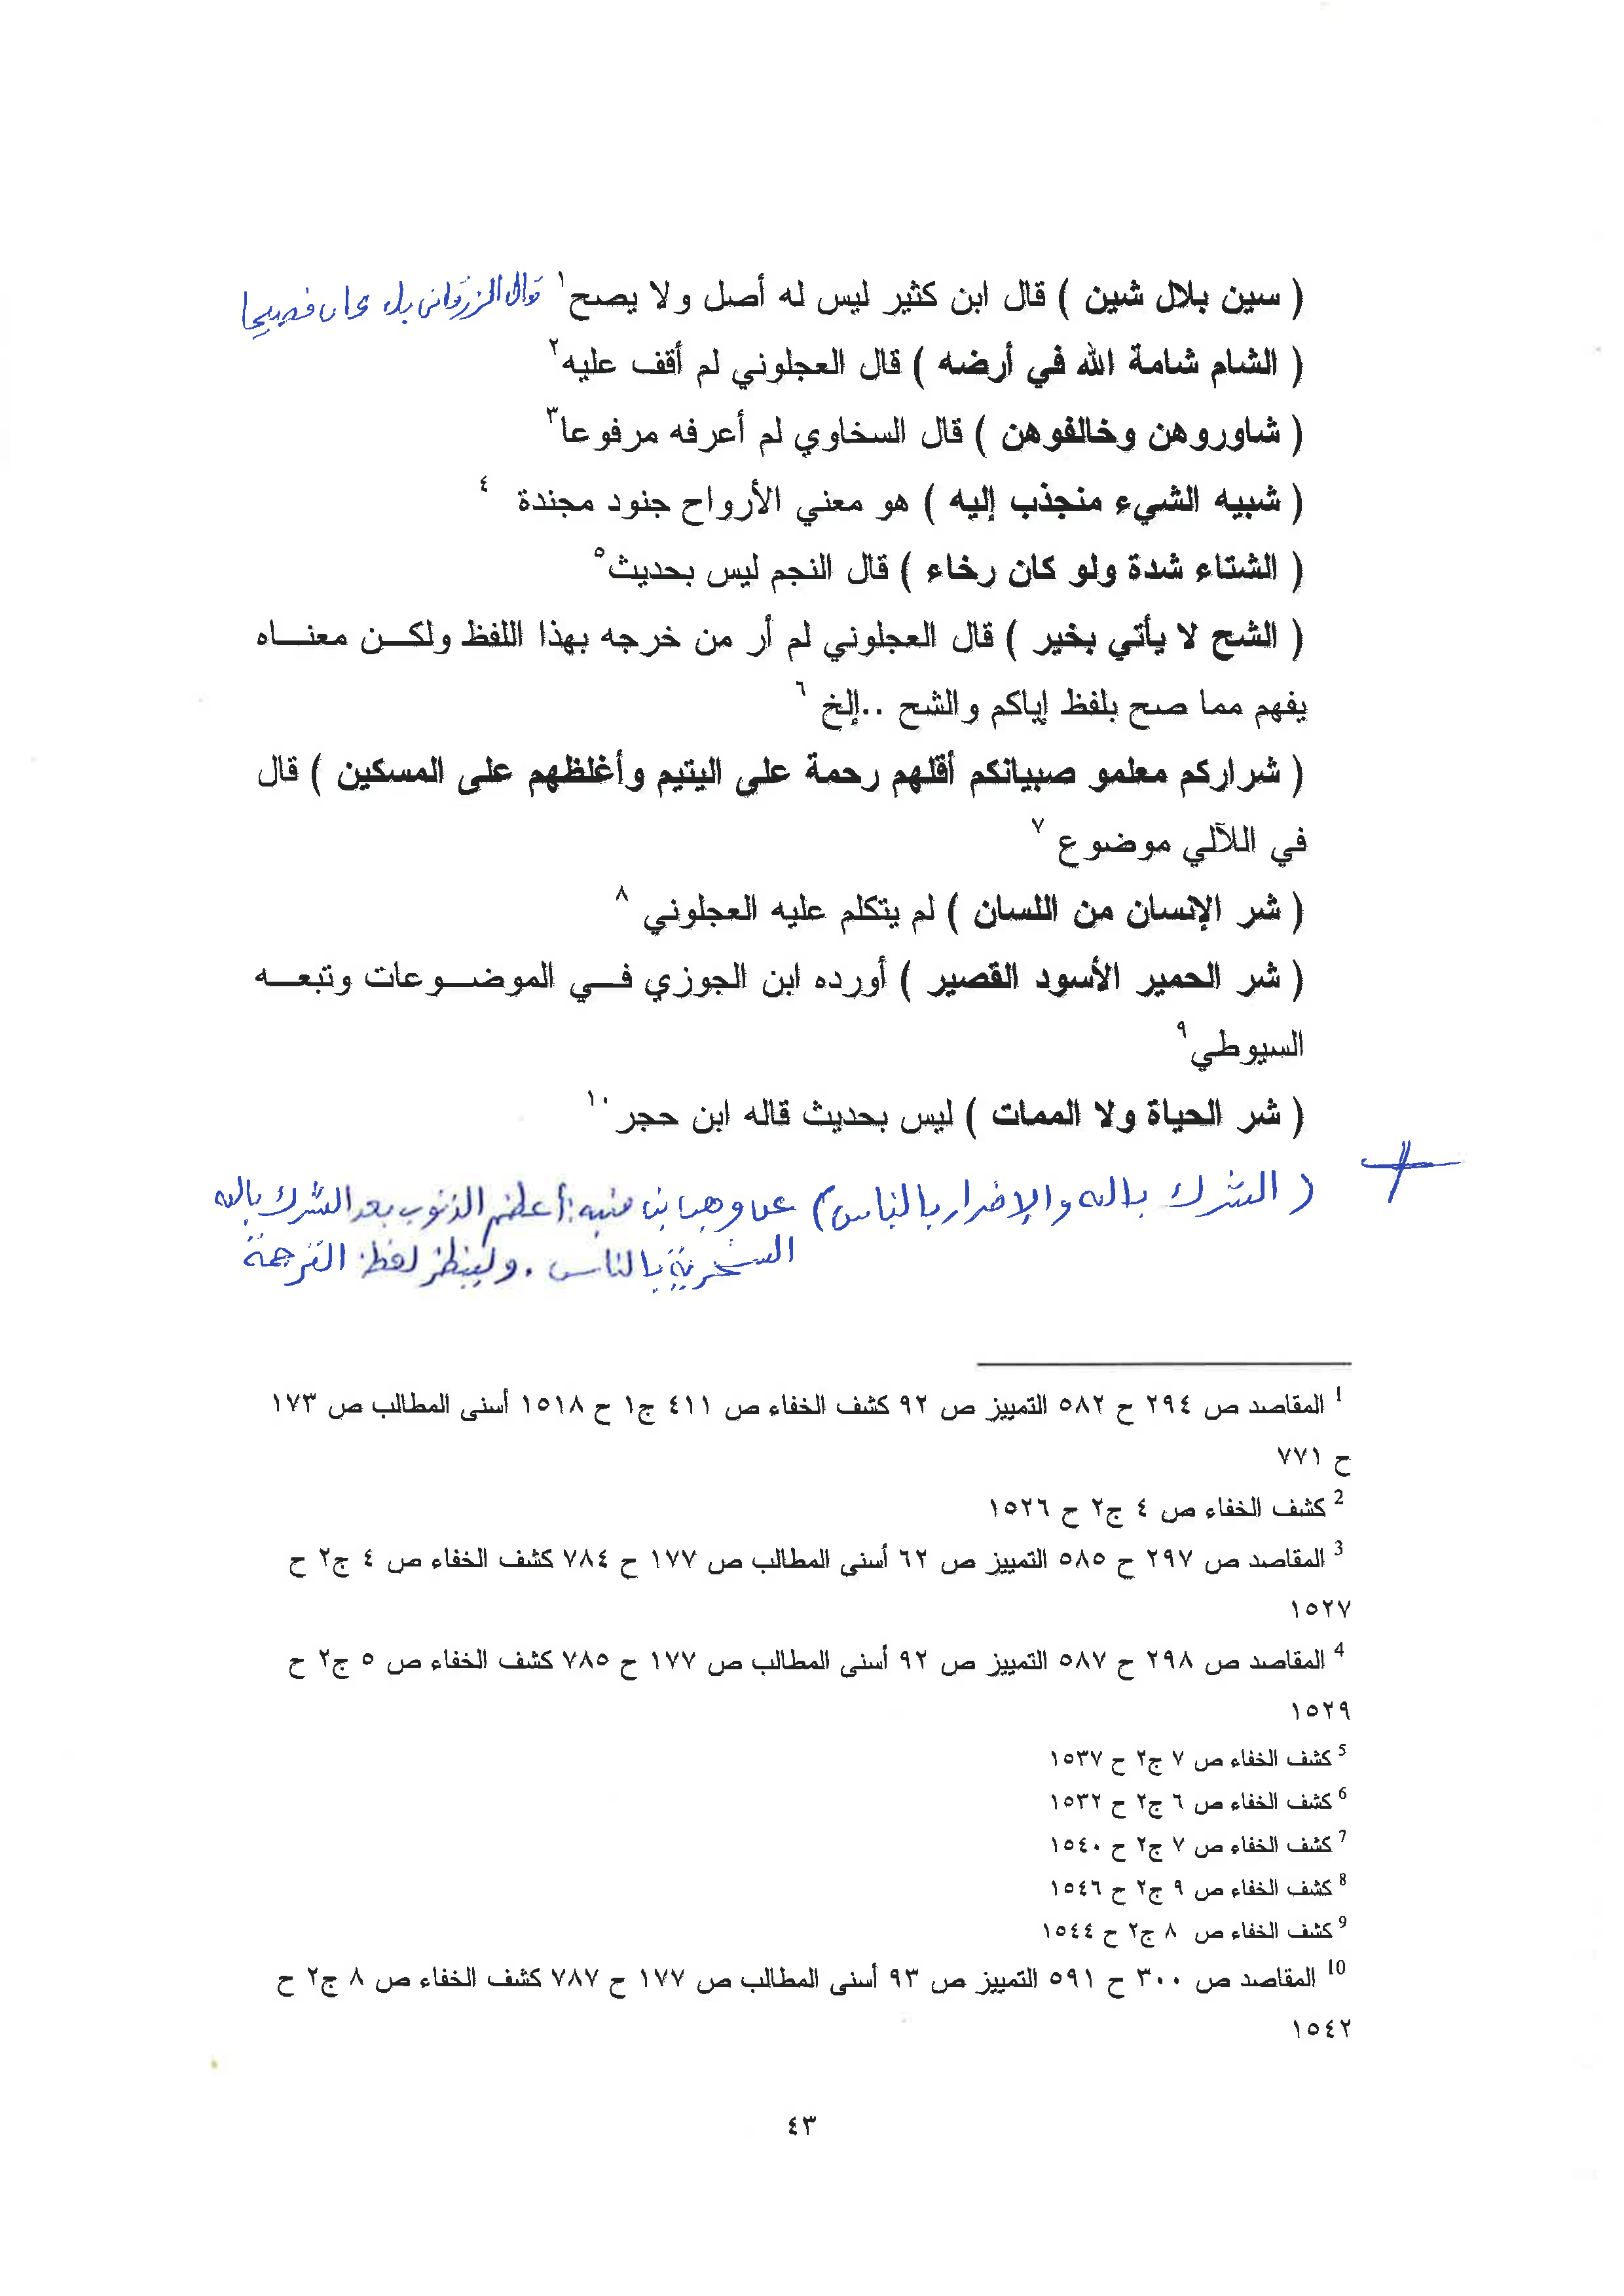 ( سين بلال شين ) قال ابن كثير ليس له أصل ولا يصح١ وقال الزرقاني بل كان فصيحا
( الشام شامة الله في أرضه ) قال العجلوني لم أقف عليه٢
( شاوروهن وخالفوهن ) قال السخاوي لم أعرفه مرفوعا٣
( شبيه الشيء منجذب إليه ) هو معني الأرواح جنود مجندة ٤
( الشتاء شدة ولو كان رخاء ) قال النجم ليس بحديث٥
( الشح لا يأتي بخير ) قال العجلوني لم أر من خرجه بهذا اللفظ ولكن معناه
يفهم مما صح بلفظ إياكم والشح ..إلخ ٦
( شراركم معلمو صبيانكم أقلهم رحمة على اليتيم وأغلظهم على المسكين ) قال
في اللآلي موضوع ٧
( شر الإنسان من اللسان ) لم يتكلم عليه العجلوني ٨
( شر الحمير الأسود القصير ) أورده ابن الجوزي في الموضوعات وتبعه
السيوطي٩
( شر الحياة ولا الممات ) ليس بحديث قاله ابن حجر ١٠
( الشرك بالله والإضرار بالناس ) عن وهب بن منبه : أعظم الذنوب بعد الشرك بالله
السخرية بالناس . ولينظر لفظ الترجمة
1 المقاصد ص ٢٩٤ ح ٥٨٢ التمييز ص ٩٢ كشف الخفاء ص ٤١١ ج١ ح ١٥١٨ أسنى المطالب ص ١٧٣
ح ٧٧١
2 كشف الخفاء ص ٤ ج٢ ح ١٥٢٦
3 المقاصد ص ٢٩٧ ح ٥٨٥ التمييز ص ٦٢ أسنى المطالب ص ١٧٧ ح ٧٨٤ كشف الخفاء ص ٤ ج٢ ح
١٥٢٧
4 المقاصد ص ٢٩٨ ح ٥٨٧ التمييز ص ٩٢ أسنى المطالب ص ١٧٧ ح ٧٨٥ كشف الخفاء ص ٥ ج٢ ح
١٥٢٩
5 كشف الخفاء ص ٧ ج٢ ح ١٥٣٧
6 كشف الخفاء ص ٦ ج٢ ح ١٥٣٢
7 كشف الخفاء ص ٧ ج٢ ح ١٥٤٠
8 كشف الخفاء ص ٩ ج٢ ح ١٥٤٦
9 كشف الخفاء ص ٨ ج٢ ح ١٥٤٤
10 المقاصد ص ٣٠٠ ح ٥٩١ التمييز ص ٩٣ أسنى المطالب ص ١٧٧ ح ٧٨٧ كشف الخفاء ص ٨ ج٢ ح
١٥٤٢
٤٣